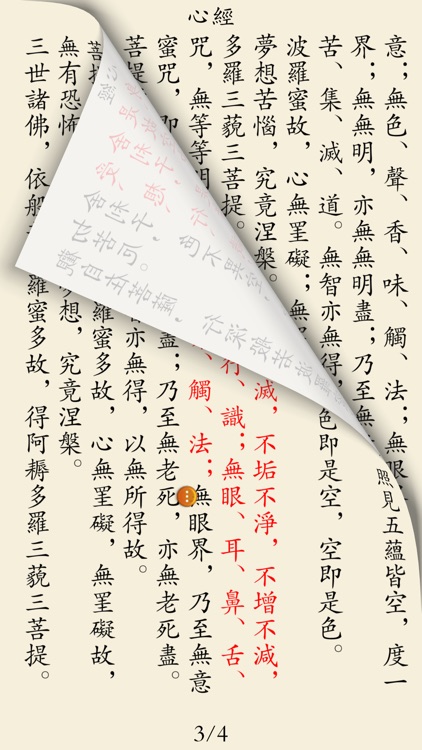 心經
意；無色、聲、香、味、觸、法；無眼
照見五蘊皆空，度一
界；無無明，亦無無明盡；乃至無
苦、集、滅、道。無智亦無得，
色即是空，空即是色。
波羅蜜故，心無罣礙；無
夢想苦惱，究竟涅槃。
滅，不垢不淨，不增不減，
多羅三藐三菩提。
行、識；無眼、耳、鼻、舌、
咒，無等等
觸、法；無眼界，乃至無意
蜜咒，即
盡；乃至無老死，亦無老死盡。
菩提
亦無得，以無所得故。
菩提
羅蜜多故，心無罣礙，無罣礙故，
無有恐怖
夢想，究竟涅槃。
三世諸佛，依般
羅蜜多故，得阿耨多羅三藐三菩提。
3/4